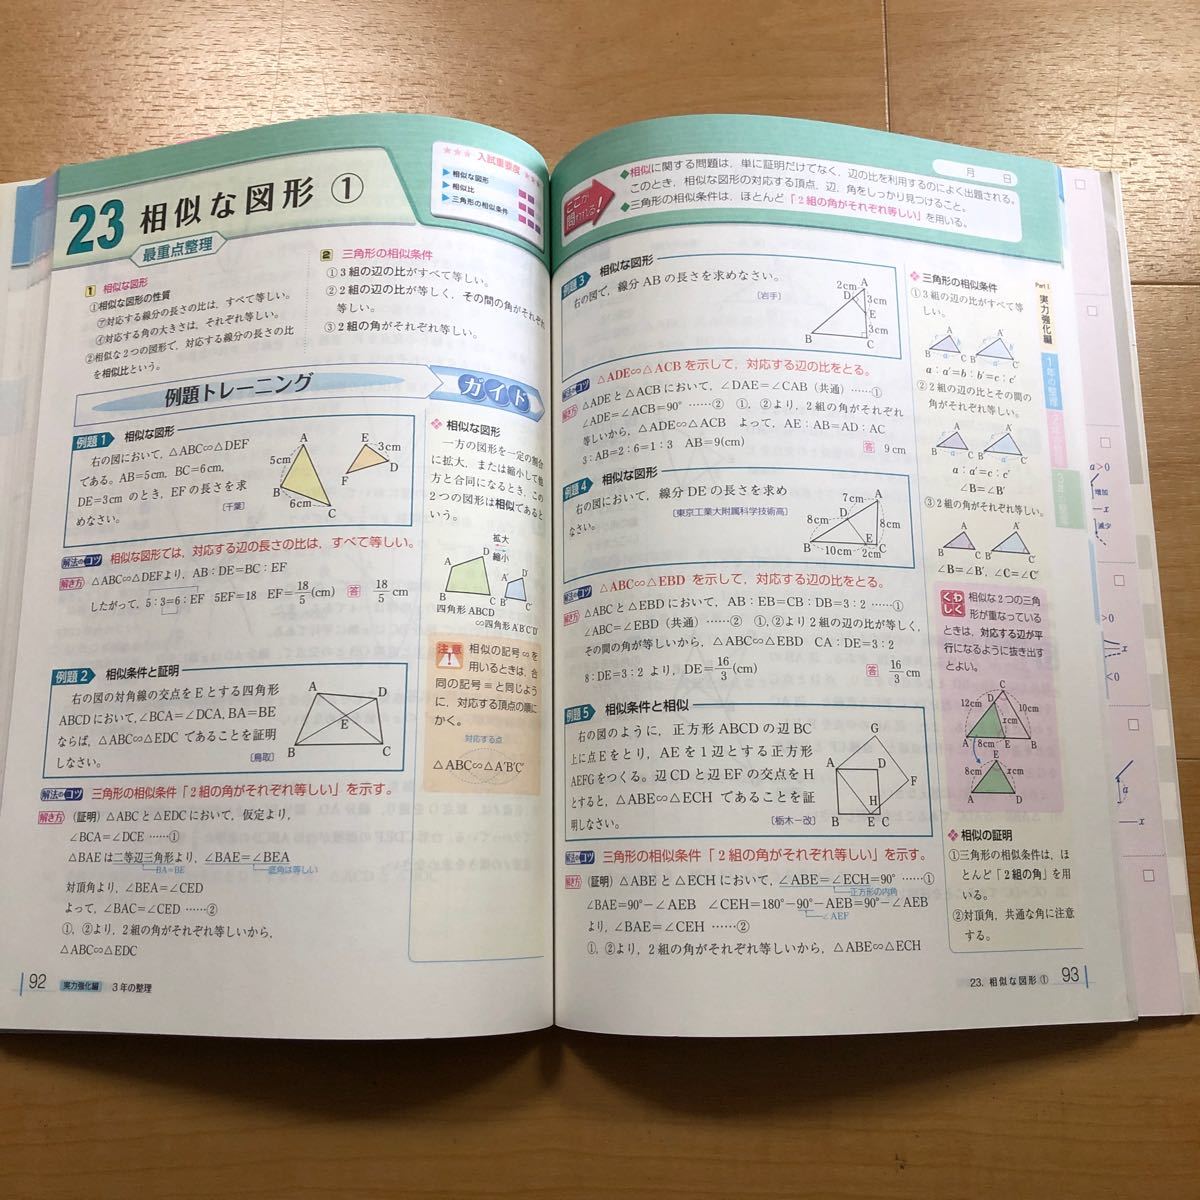 23 相似な図形 ①
最重点整理
★★★ 入試重要度 ★★★
▶相似な図形
▶相似比
▶三角形の相似条件
1 相似な図形
①相似な図形の性質
㋐対応する線分の長さの比は，すべて等しい。
㋑対応する角の大きさは，それぞれ等しい。
②相似な2つの図形で，対応する線分の長さの比
を相似比という。
2 三角形の相似条件
①3組の辺の比がすべて等しい。
②2組の辺の比が等しく，その間の角がそれぞれ
等しい。
③2組の角がそれぞれ等しい。
例題トレーニング
ガイド
例題1 相似な図形
右の図において，△ABC∽△DEF
である。AB=5cm，BC=6cm，
DE=3cmのとき，EFの長さを求
めなさい。
〔千葉〕
A
5cm
B
6cm
C
E
3cm
D
F
解法のコツ 相似な図形では，対応する辺の長さの比は，すべて等しい。
解き方 △ABC∽△DEFより，AB：DE=BC：EF
したがって，5：3=6：EF 5EF=18 EF=18/5(cm) 答 18/5 cm
例題2 相似条件と証明
右の図の対角線の交点をEとする四角形
ABCDにおいて，∠BCA=∠DCA，BA=BE
ならば，△ABC∽△EDCであることを証明
しなさい。
〔鳥取〕
A
D
E
B
C
解法のコツ 三角形の相似条件「2組の角がそれぞれ等しい」を示す。
解き方 （証明）△ABCと△EDCにおいて，仮定より，
∠BCA=∠DCE ……①
△BAEは二等辺三角形より，∠BAE=∠BEA
BA=BE
底角は等しい
対頂角より，∠BEA=∠CED
よって，∠BAC=∠CED ……②
①，②より，2組の角がそれぞれ等しいから，
△ABC∽△EDC
❖ 相似な図形
一方の図形を一定の割合
に拡大，または縮小して他
方と合同になるとき，この
2つの図形は相似であると
いう。
拡大
縮小
A
D
B
C
A′
D′
B′
C′
四角形ABCD
∽四角形A′B′C′D′
注意
相似の記号∽を
用いるときは，合
同の記号≡と同じよう
に，対応する頂点の順に
かく。
対応する点
△ABC∽△A′B′C′
92 実力強化編 3年の整理
月 日
ここが問われる！
◆相似に関する問題は，単に証明だけでなく，辺の比を利用するのによく出題される。
このとき，相似な図形の対応する頂点，辺，角をしっかり見つけること。
◆三角形の相似条件は，ほとんど「2組の角がそれぞれ等しい」を用いる。
例題3 相似な図形
右の図で，線分ABの長さを求めなさい。
〔岩手〕
2cm
A
D
3cm
E
3cm
B
C
解法のコツ △ADE∽△ACBを示して，対応する辺の比をとる。
解き方 △ADEと△ACBにおいて，∠DAE=∠CAB（共通）……①
∠ADE=∠ACB=90° ……② ①，②より，2組の角がそれぞれ
等しいから，△ADE∽△ACB よって，AE：AB=AD：AC
3：AB=2：6=1：3 AB=9(cm) 答 9cm
例題4 相似な図形
右の図において，線分DEの長さを求め
なさい。
〔東京工業大附属科学技術高〕
7cm
A
D
8cm
8cm
B
E
C
10cm
2cm
解法のコツ △ABC∽△EBDを示して，対応する辺の比をとる。
解き方 △ABCと△EBDにおいて，AB：EB=CB：DB=3：2 ……①
∠ABC=∠EBD（共通）……② ①，②より2組の辺の比が等しく，
その間の角が等しいから，△ABC∽△EBD CA：DE=3：2
8：DE=3：2より，DE=16/3(cm) 答 16/3 cm
例題5 相似条件と相似
右の図のように，正方形ABCDの辺BC
上に点Eをとり，AEを1辺とする正方形
AEFGをつくる。辺CDと辺EFの交点をH
とすると，△ABE∽△ECHであることを証
明しなさい。
〔栃木一改〕
G
A
D
F
H
B
E
C
解法のコツ 三角形の相似条件「2組の角がそれぞれ等しい」を示す。
解き方 （証明）△ABEと△ECHにおいて，∠ABE=∠ECH=90° ……①
正方形の内角
∠BAE=90°−∠AEB ∠CEH=180°−90°−AEB=90°−∠AEB
∠AEF
より，∠BAE=∠CEH ……②
①，②より，2組の角がそれぞれ等しいから，△ABE∽△ECH
❖ 三角形の相似条件
①3組の辺の比がすべて等
しい。
a：a′=b：b′=c：c′
②2組の辺の比とその間の
角がそれぞれ等しい。
a：a′=c：c′
∠B=∠B′
③2組の角がそれぞれ等し
い。
∠B=∠B′，∠C=∠C′
くわしく
相似な2つの三角
形が重なっている
ときは，対応する辺が平
行になるように抜き出す
とよい。
C
12cm
D
xcm
A
8cm
E
B
C
8cm
xcm
A
D
❖ 相似の証明
①三角形の相似条件は，ほ
とんど「2組の角」を用
いる。
②対頂角，共通な角に注意
する。
Part 1
実力強化編
1年の整理
2年の整理
3年の整理
23. 相似な図形① 93
a>0
増加
x
減少
>0
<0
a
x